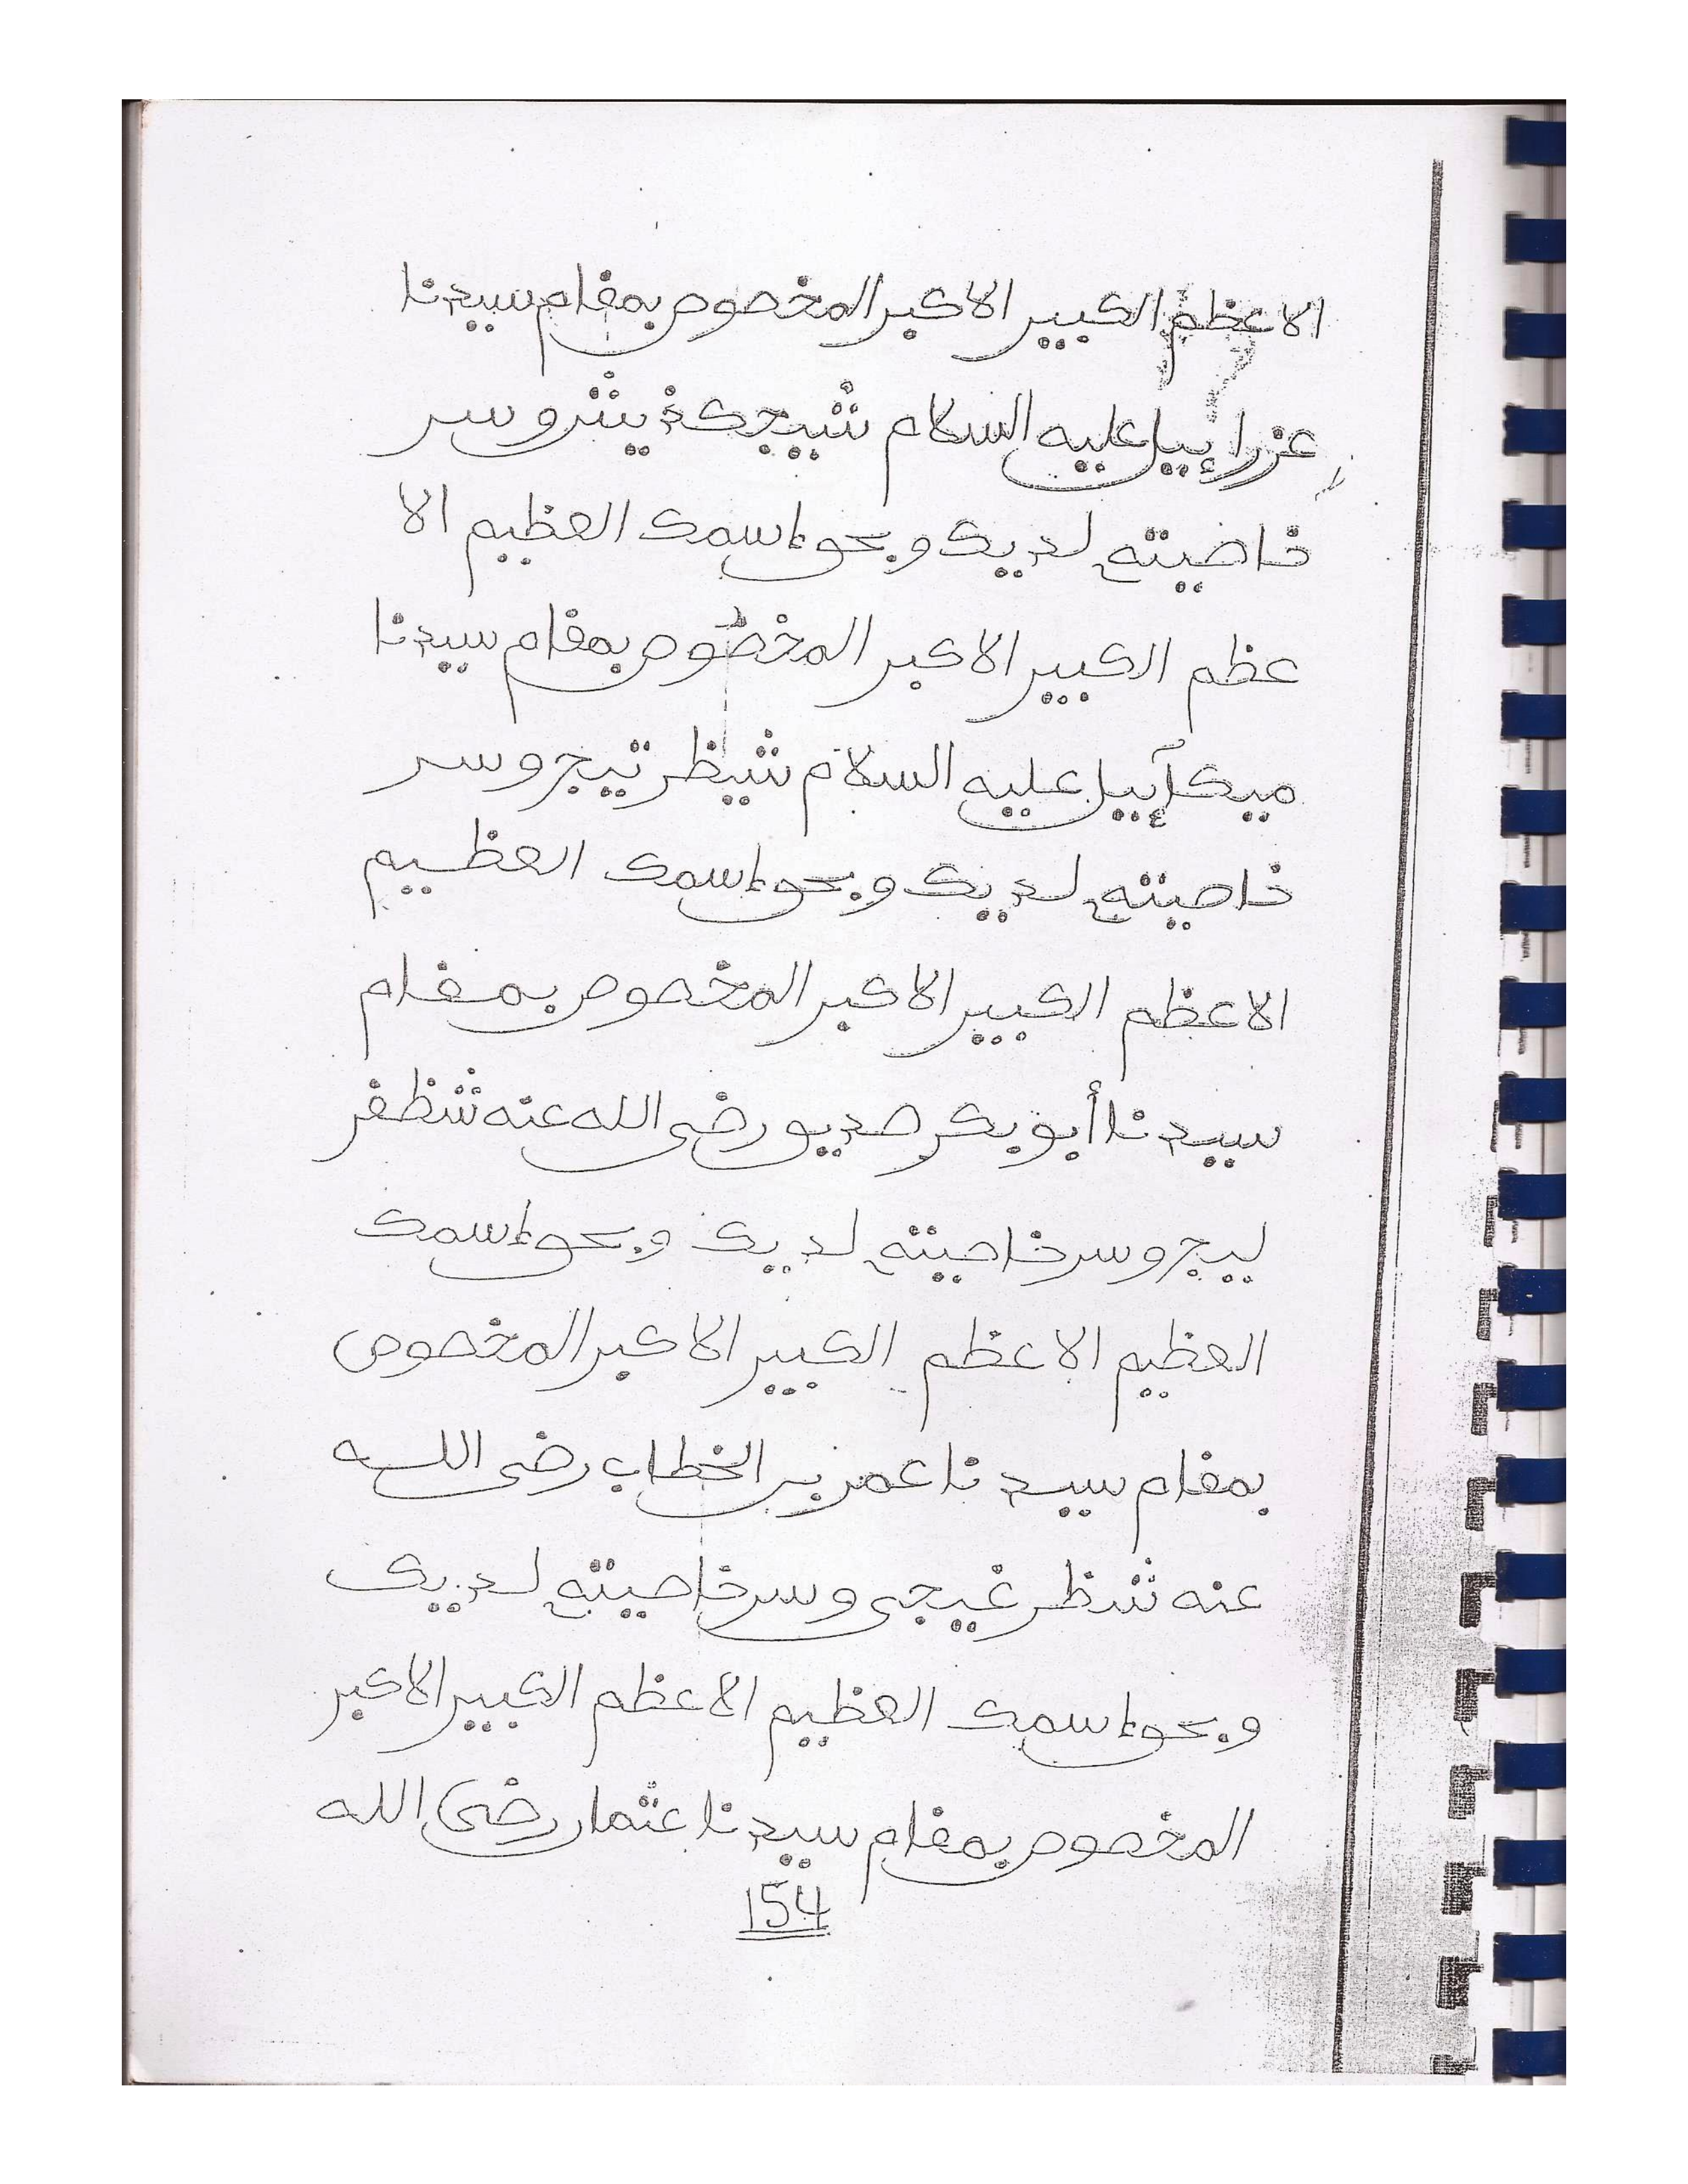 الاعظم الكبير الاكبر المخصوص بمقام سيدنا
عزرإييل عليه السلام شيجكة يشر وسر
خاضيته لديك وبحق إسمك العظيم الا
عظم الكبير الاكبر المخضوص بمقام سيدنا
ميكآإييل عليه السلام شيظر تيجر وسر
خاصيته لديك وبحق إسمك العظيم
الاعظم الكبير الاكبر المخصوص بمقام
سيدنا أبو بكر صديق رضي الله عنه شظفر
ليجر وسر خاصيته لديك وبحق إسمك
العظيم الاعظم الكبير الاكبر المخصوص
بمقام سيدنا عمر بن الخطاب رضي الله
عنه شظر غيجي وسر خاصيته لديك
وبحق إسمك العظيم الاعظم الكبير الاكبر
المخصوص بمقام سيدنا عثمان رضي الله
154